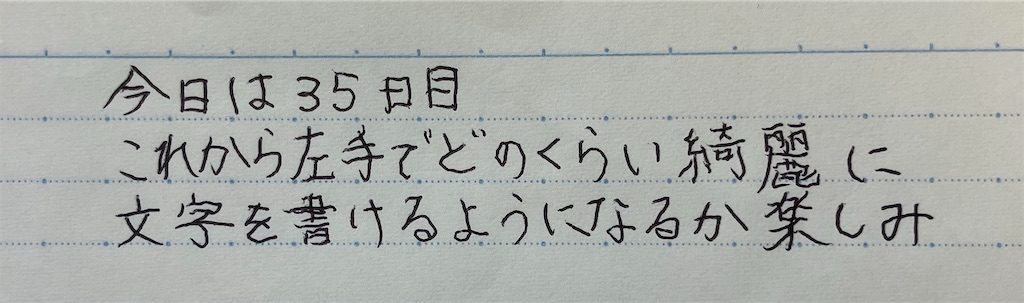 今日は35日目
これから左手でどのくらい綺麗に
文字を書けるようになるか楽しみ